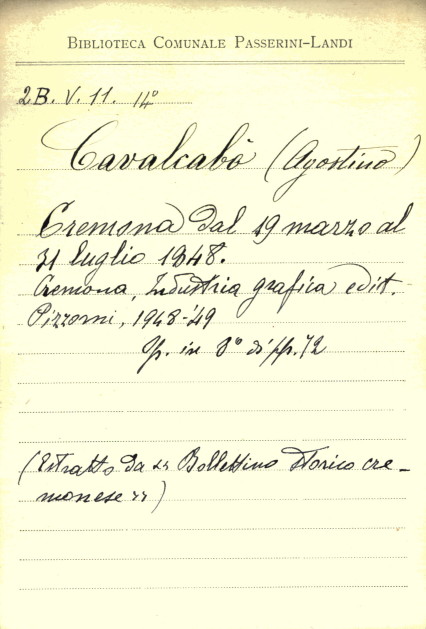 BIBLIOTECA COMUNALE PASSERINI-LANDI
2B. V. 11. 14°
Cavalcabò (Agostino)
Cremona dal 19 marzo al
31 luglio 1848.
Cremona, Industria grafica edit.
Pizzorni, 1948-'49
Op. in 8° di pp. 72
(Estratto da "Bollettino Storico cre-
monese")